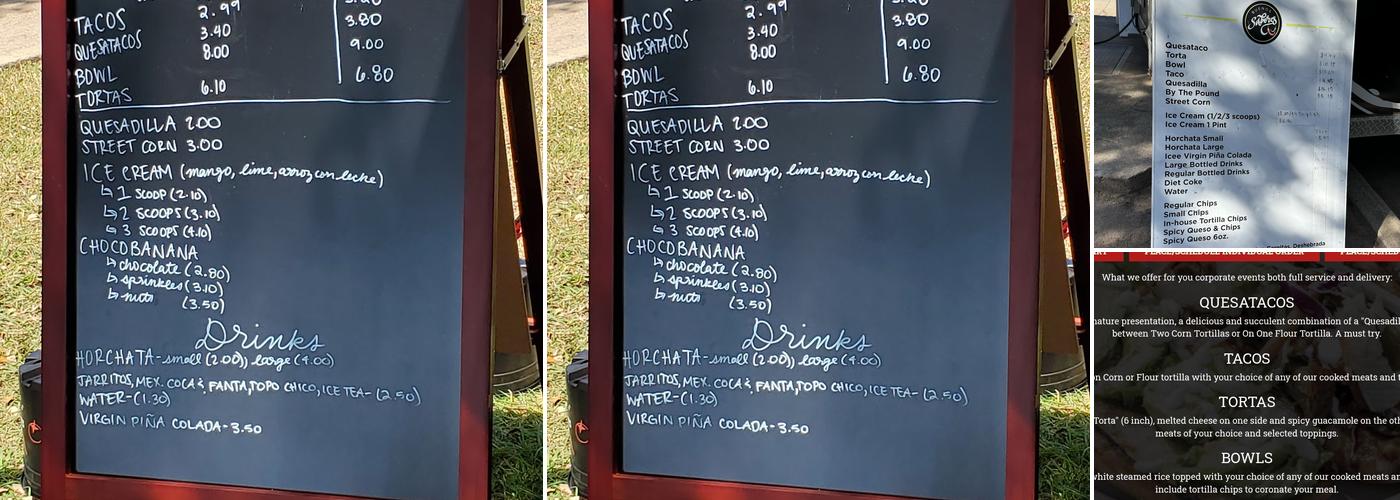 2.99
TACOS
3.40
3.80
QUESATACOS
8.00
9.00
BOWL
6.10
6.80
TORTAS
QUESADILLA 2.00
STREET CORN 3.00
ICE CREAM (mango, lime, arroz con leche)
↳ 1 SCOOP (2.10)
↳ 2 SCOOPS (3.10)
↳ 3 SCOOPS (4.10)
CHOCOBANANA
↳ chocolate (2.80)
↳ sprinkles (3.10)
↳ nuts (3.50)
Drinks
HORCHATA - small (2.00), large (4.00)
JARRITOS, MEX. COCA & FANTA, TOPO CHICO, ICE TEA - (2.50)
WATER - (1.30)
VIRGIN PIÑA COLADA - 3.50
2.99
TACOS
3.40
3.80
QUESATACOS
8.00
9.00
BOWL
6.10
6.80
TORTAS
QUESADILLA 2.00
STREET CORN 3.00
ICE CREAM (mango, lime, arroz con leche)
↳ 1 SCOOP (2.10)
↳ 2 SCOOPS (3.10)
↳ 3 SCOOPS (4.10)
CHOCOBANANA
↳ chocolate (2.80)
↳ sprinkles (3.10)
↳ nuts (3.50)
Drinks
HORCHATA - small (2.00), large (4.00)
JARRITOS, MEX. COCA & FANTA, TOPO CHICO, ICE TEA - (2.50)
WATER - (1.30)
VIRGIN PIÑA COLADA - 3.50
Sabores
Quesataco
Torta
Bowl
Taco
Quesadilla
By The Pound
Street Corn
Ice Cream (1/2/3 scoops)
Ice Cream 1 Pint
Horchata Small
Horchata Large
Icee Virgin Piña Colada
Large Bottled Drinks
Regular Bottled Drinks
Diet Coke
Water
Regular Chips
Small Chips
In-house Tortilla Chips
Spicy Queso & Chips
Spicy Queso 6oz.
Deshebrada
What we offer for you corporate events both full service and delivery:
QUESATACOS
presentation, a delicious and succulent combination of a "Quesadil
between Two Corn Tortillas or On One Flour Tortilla. A must try.
TACOS
on Corn or Flour tortilla with your choice of any of our cooked meats and
TORTAS
Torta" (6 inch), melted cheese on one side and spicy guacamole on the
meats of your choice and selected toppings.
BOWLS
white steamed rice topped with your choice of any of our cooked meats
include tortilla chips to coronate your meal.